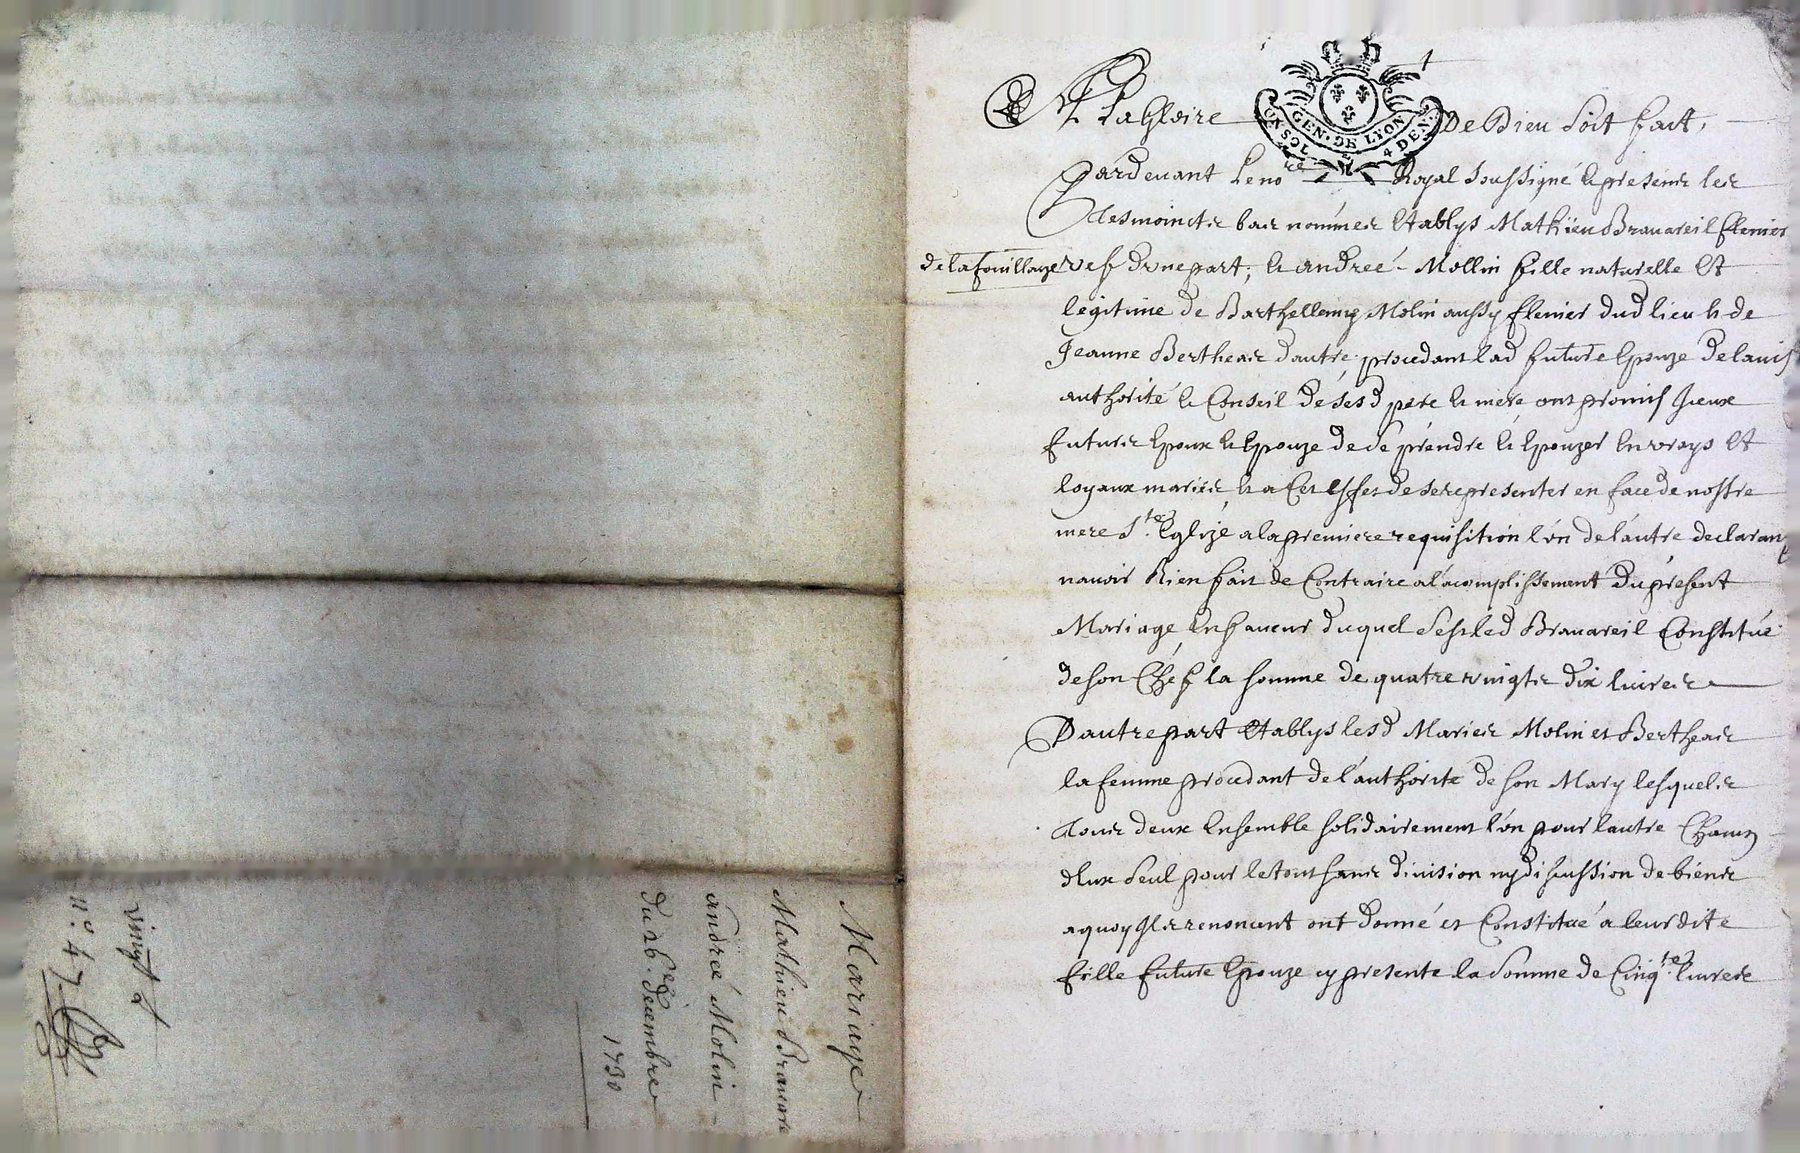 A La Gloire De Dieu Soit fait,
GEN. DE LYON
4 DEN.
Pardevant Le no.re Royal Soussigné & presens les
tesmoints bas nommés Establys Mathieu Bravareil
de la fouillage vef d'vne part; & andreé Mollin fille naturelle Et
legitime de Barthellemy Molin aussy dud lieu & de
Jeanne Bertheas d'autre; procedant lad future Epouze de lavis
authorité & Conseil de sesd pere & mere ont promis Jceux
futurs Epoux & Epouze de Se prendre & Epouzer En vrays Et
loyaux mariés, & a Cet effet de se representer en face de nostre
mere S.te Eglize a la premiere requisition l'vn de l'autre declarant
n'avoir Rien fait de Contraire a l'acomplissement du present
Mariage, En faveur duquel S'est led Bravareil Constitué
de son Chef la somme de quatre vingts dix livres
D'autre part Establys lesd Mariés Molin et Bertheas
la femme procedant de l'authorité de son Mary lesquels
tous deux Ensemble solidairement l'vn pour lautre Chacun
d'Eux Seul pour le tout sans division ny discussion de biens
a quoy Ils renoncent ont donné et Constitué a leurdite
fille future Epouze cy presente la Somme de Cinq.te livres
Mariage
Mathieu Bravare
andreé Molin
du 26.e decembre
1730
vingt
n.o 47